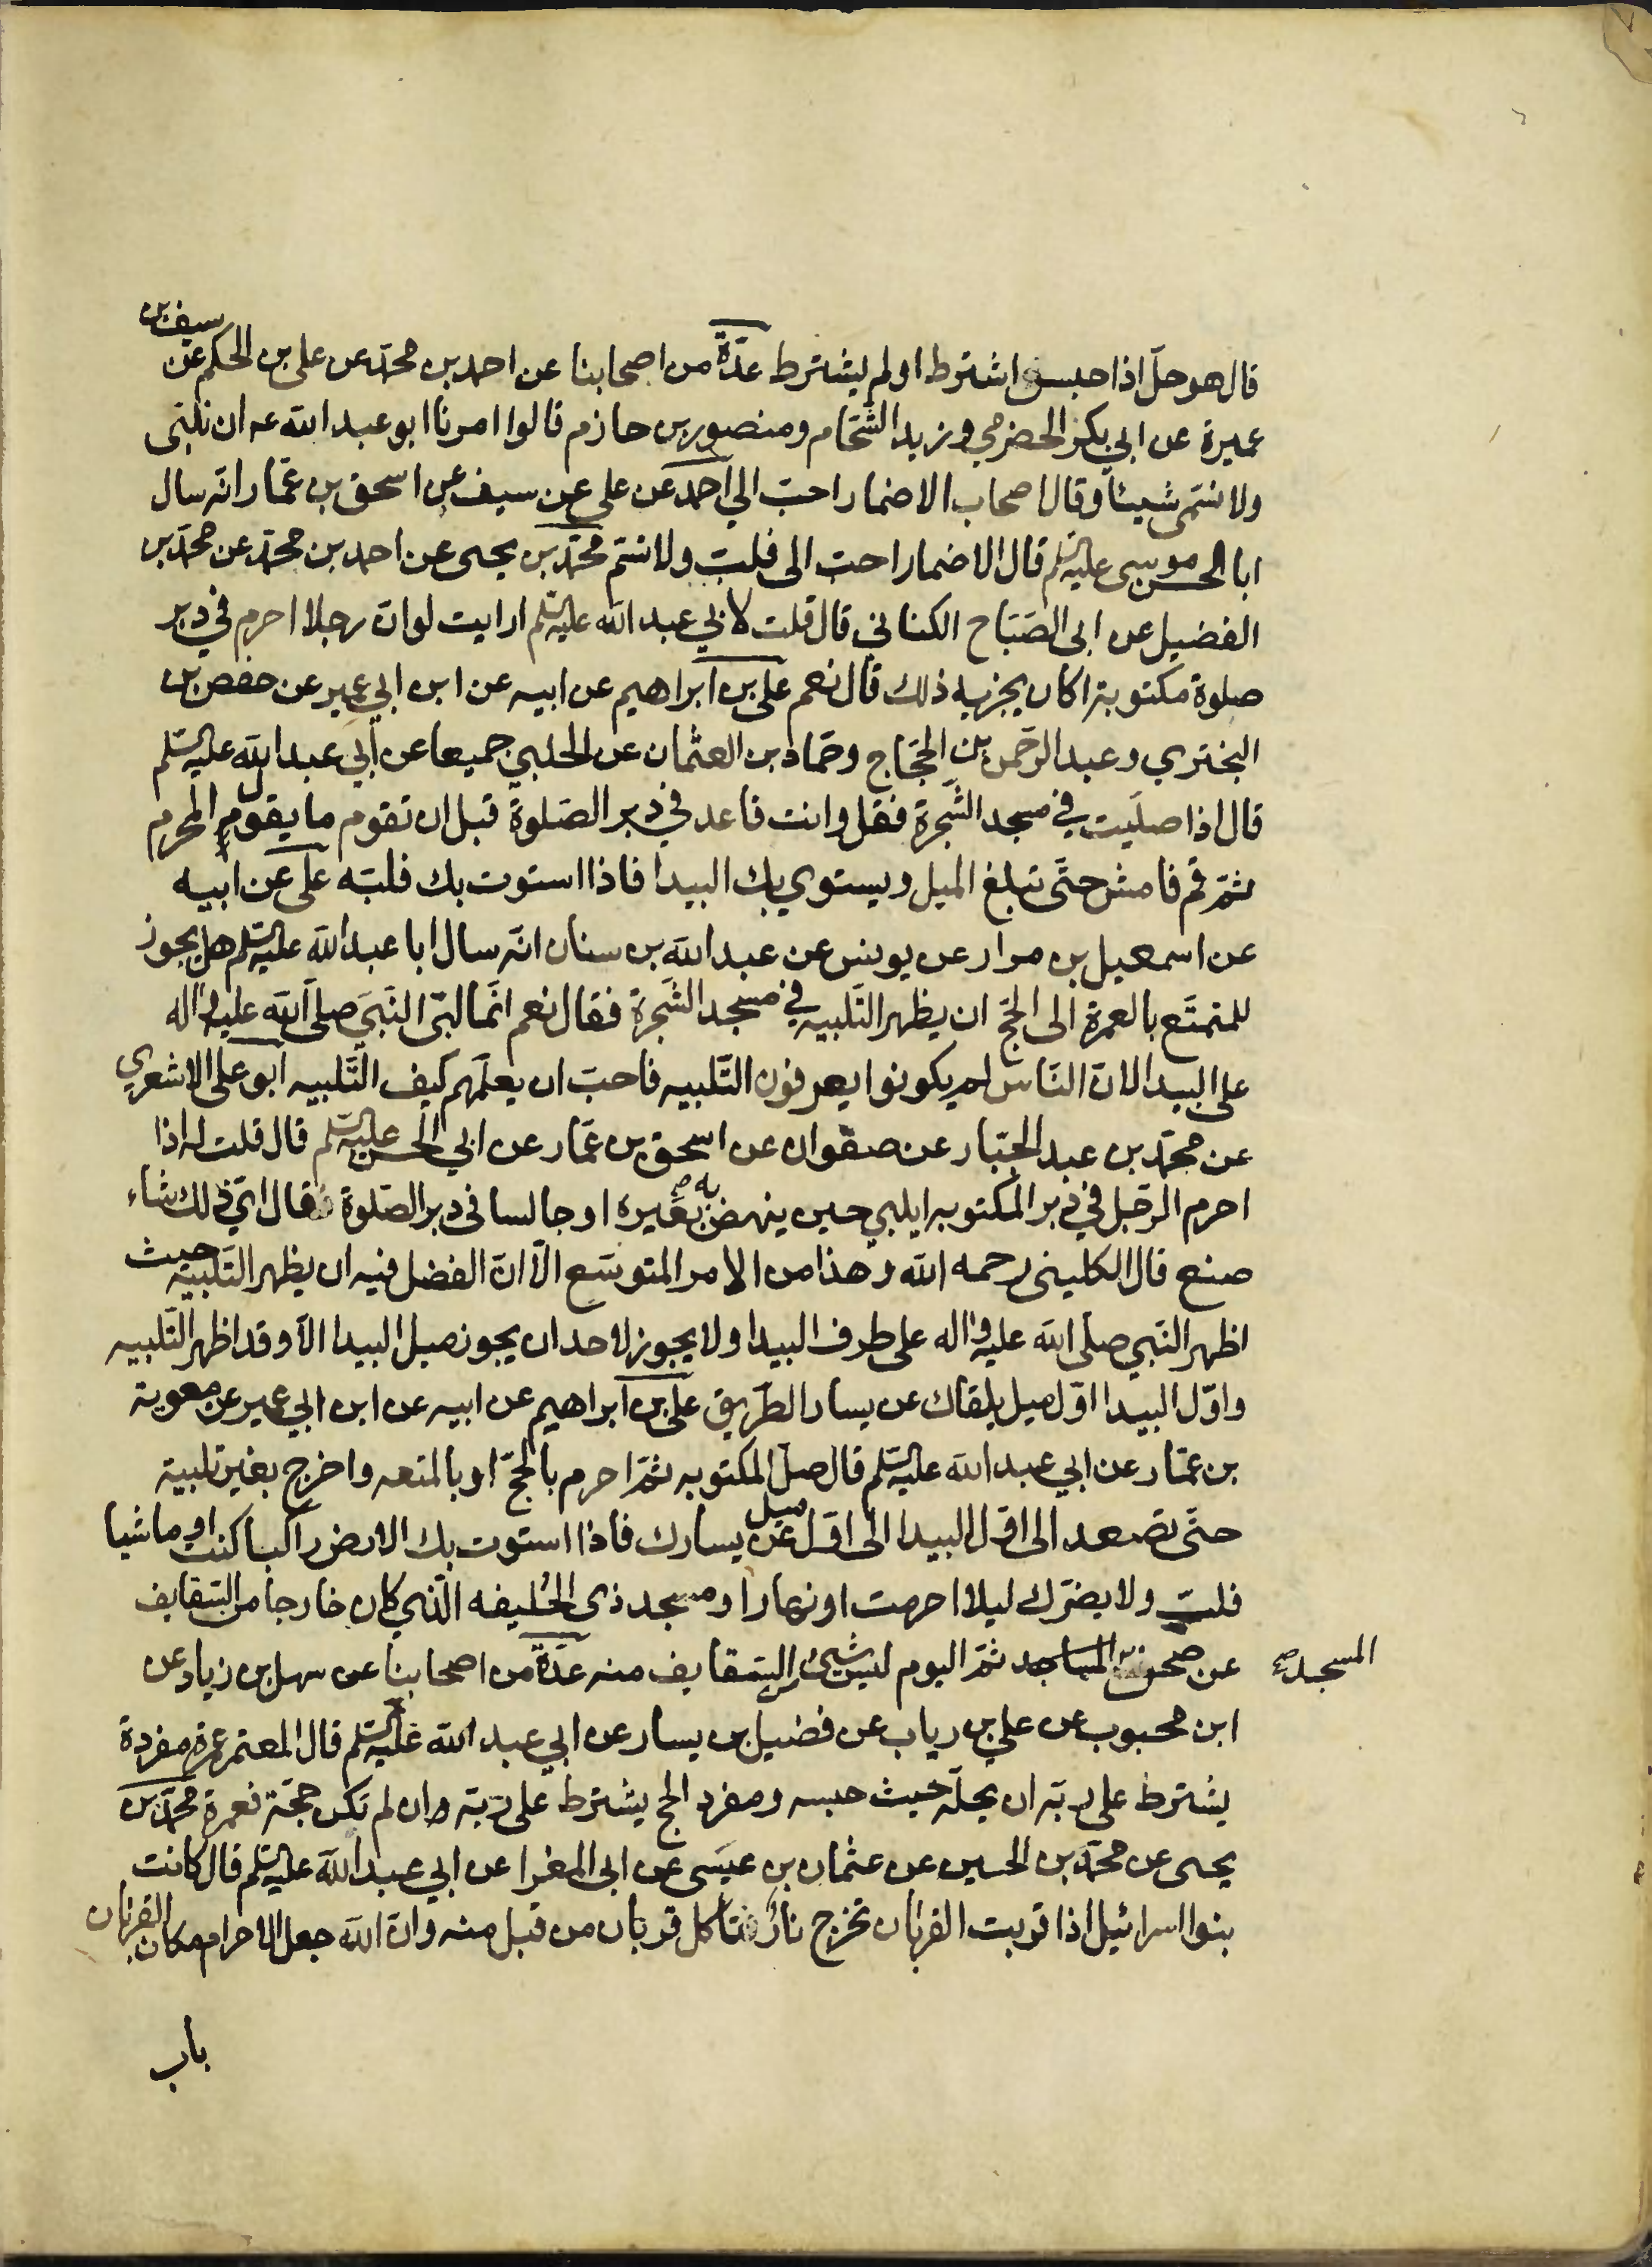 قال هو حلّ اذا حبسه اشترط او لم يشترط عدّة من اصحابنا عن احمد بن محمّد عن علي بن الحكم عن سيف بن
عميرة عن ابي بكر الحضرمي و زيد الشّحّام و منصور بن حازم قالوا امرنا ابو عبد الله عه ان نلبّى
ولا نسمّى شيئاً و قال اصحاب الاضمار احبّ الي احمد عن علي عن سيف عن اسحق بن عمّار انّه سال
ابا الحسن موسى عليه السّلم قال الاضمار احبّ الى فلبّ ولا تسمّ محمّد بن يحيى عن احمد بن محمّد عن محمّد بن
الفضيل عن ابى الصّبّاح الكناني قال قلت لابي عبد الله عليه السّلم ارايت لو انّ رجلا احرم في دبر
صلوة مكتوبة اكان يجزيه ذلك قال نعم علي بن ابراهيم عن ابيه عن ابن ابي عمير عن حفص بن
البختري و عبد الرّحمن بن الحجّاج و حمّاد بن العثمان عن الحلبي جميعا عن ابي عبد الله عليه السّلم
قال اذا صلّيت في مسجد الشّجرة فقل وانت قاعد في دبر الصّلوة قبل ان تقوم ما يقول المحرم
ثمّ قم فامش حتّى تبلغ الميل و يستوي بك البيدا فاذا استوت بك فلبّه علي عن ابيه
عن اسمعيل بن مرار عن يونس عن عبد الله بن سنان انّه سال ابا عبد الله عليه السّلم هل يجوز
للمتمتّع بالعمرة الى الحجّ ان يظهر التّلبيه في مسجد الشّجرة فقال نعم انّما لبّى النّبيّ صلّى الله عليه و اله
على البيدا لانّ النّاس لم يكونوا يعرفون التّلبيه فاحبّ ان يعلّمهم كيف التّلبيه ابو علي الاشعري
عن محمّد بن عبد الجبّار عن صفوان عن اسحق بن عمّار عن ابي الحسن عليه السّلم قال قلت له اذا
احرم الرّجل في دبر المكتوبه ايلبي حين ينهض به بعيره او جالسا فى دبر الصّلوة فقال ايّ ذلك شاء
صنع قال الكلينى رحمه الله و هذا من الامر المتوسّع الّا انّ الفضل فيه ان يظهر التّلبية حيث
اظهر النّبي صلّى الله عليه و اله على طرف البيدا ولا يجوز لاحد ان يجوز ميل البيدا الّا و قد اظهر التّلبيه
و اوّل البيدا اوّل ميل يلقاك عن يسار الطّريق علي بن ابراهيم عن ابيه عن ابن ابي عمير عن معوية
بن عمّار عن ابي عبد الله عليه السّلم قال صلّ المكتوبه ثمّ احرم بالحجّ او بالمتعه و اخرج بغير تلبية
حتّى تصعد الى اوّل البيدا الى اوّل ميل عن يسارك فاذا استوت بك الارض راكبا كنت او ماشيا
فلبّ ولا يضرّك ليلا احرمت او نهارا و مسجد ذى الحُليفه الّذي كان خارجا من السّقايف
عن صحن المسجد ثمّ اليوم ليس شيئ من السّقايف منه عدّة من اصحابنا عن سهل بن زياد عن
ابن محبوب عن علي بن رياب عن فضيل بن يسار عن ابي عبد الله عليه السّلم قال المعتمر عمرة مفردة
يشترط على ربّه ان يحلّه حيث حبسه و مفرد الحج يشترط على ربّه و ان لم تكن حجّة فعمرة محمّد بن
يحيى عن محمّد بن الحسين عن عثمان بن عيسى عن ابى المغرا عن ابي عبد الله عليه السّلم قال كانت
بنوا اسرائيل اذا قربت القربان تخرج نار تاكل قربان من قبل منه و انّ الله جعل الاحرام مكان القربان
باب